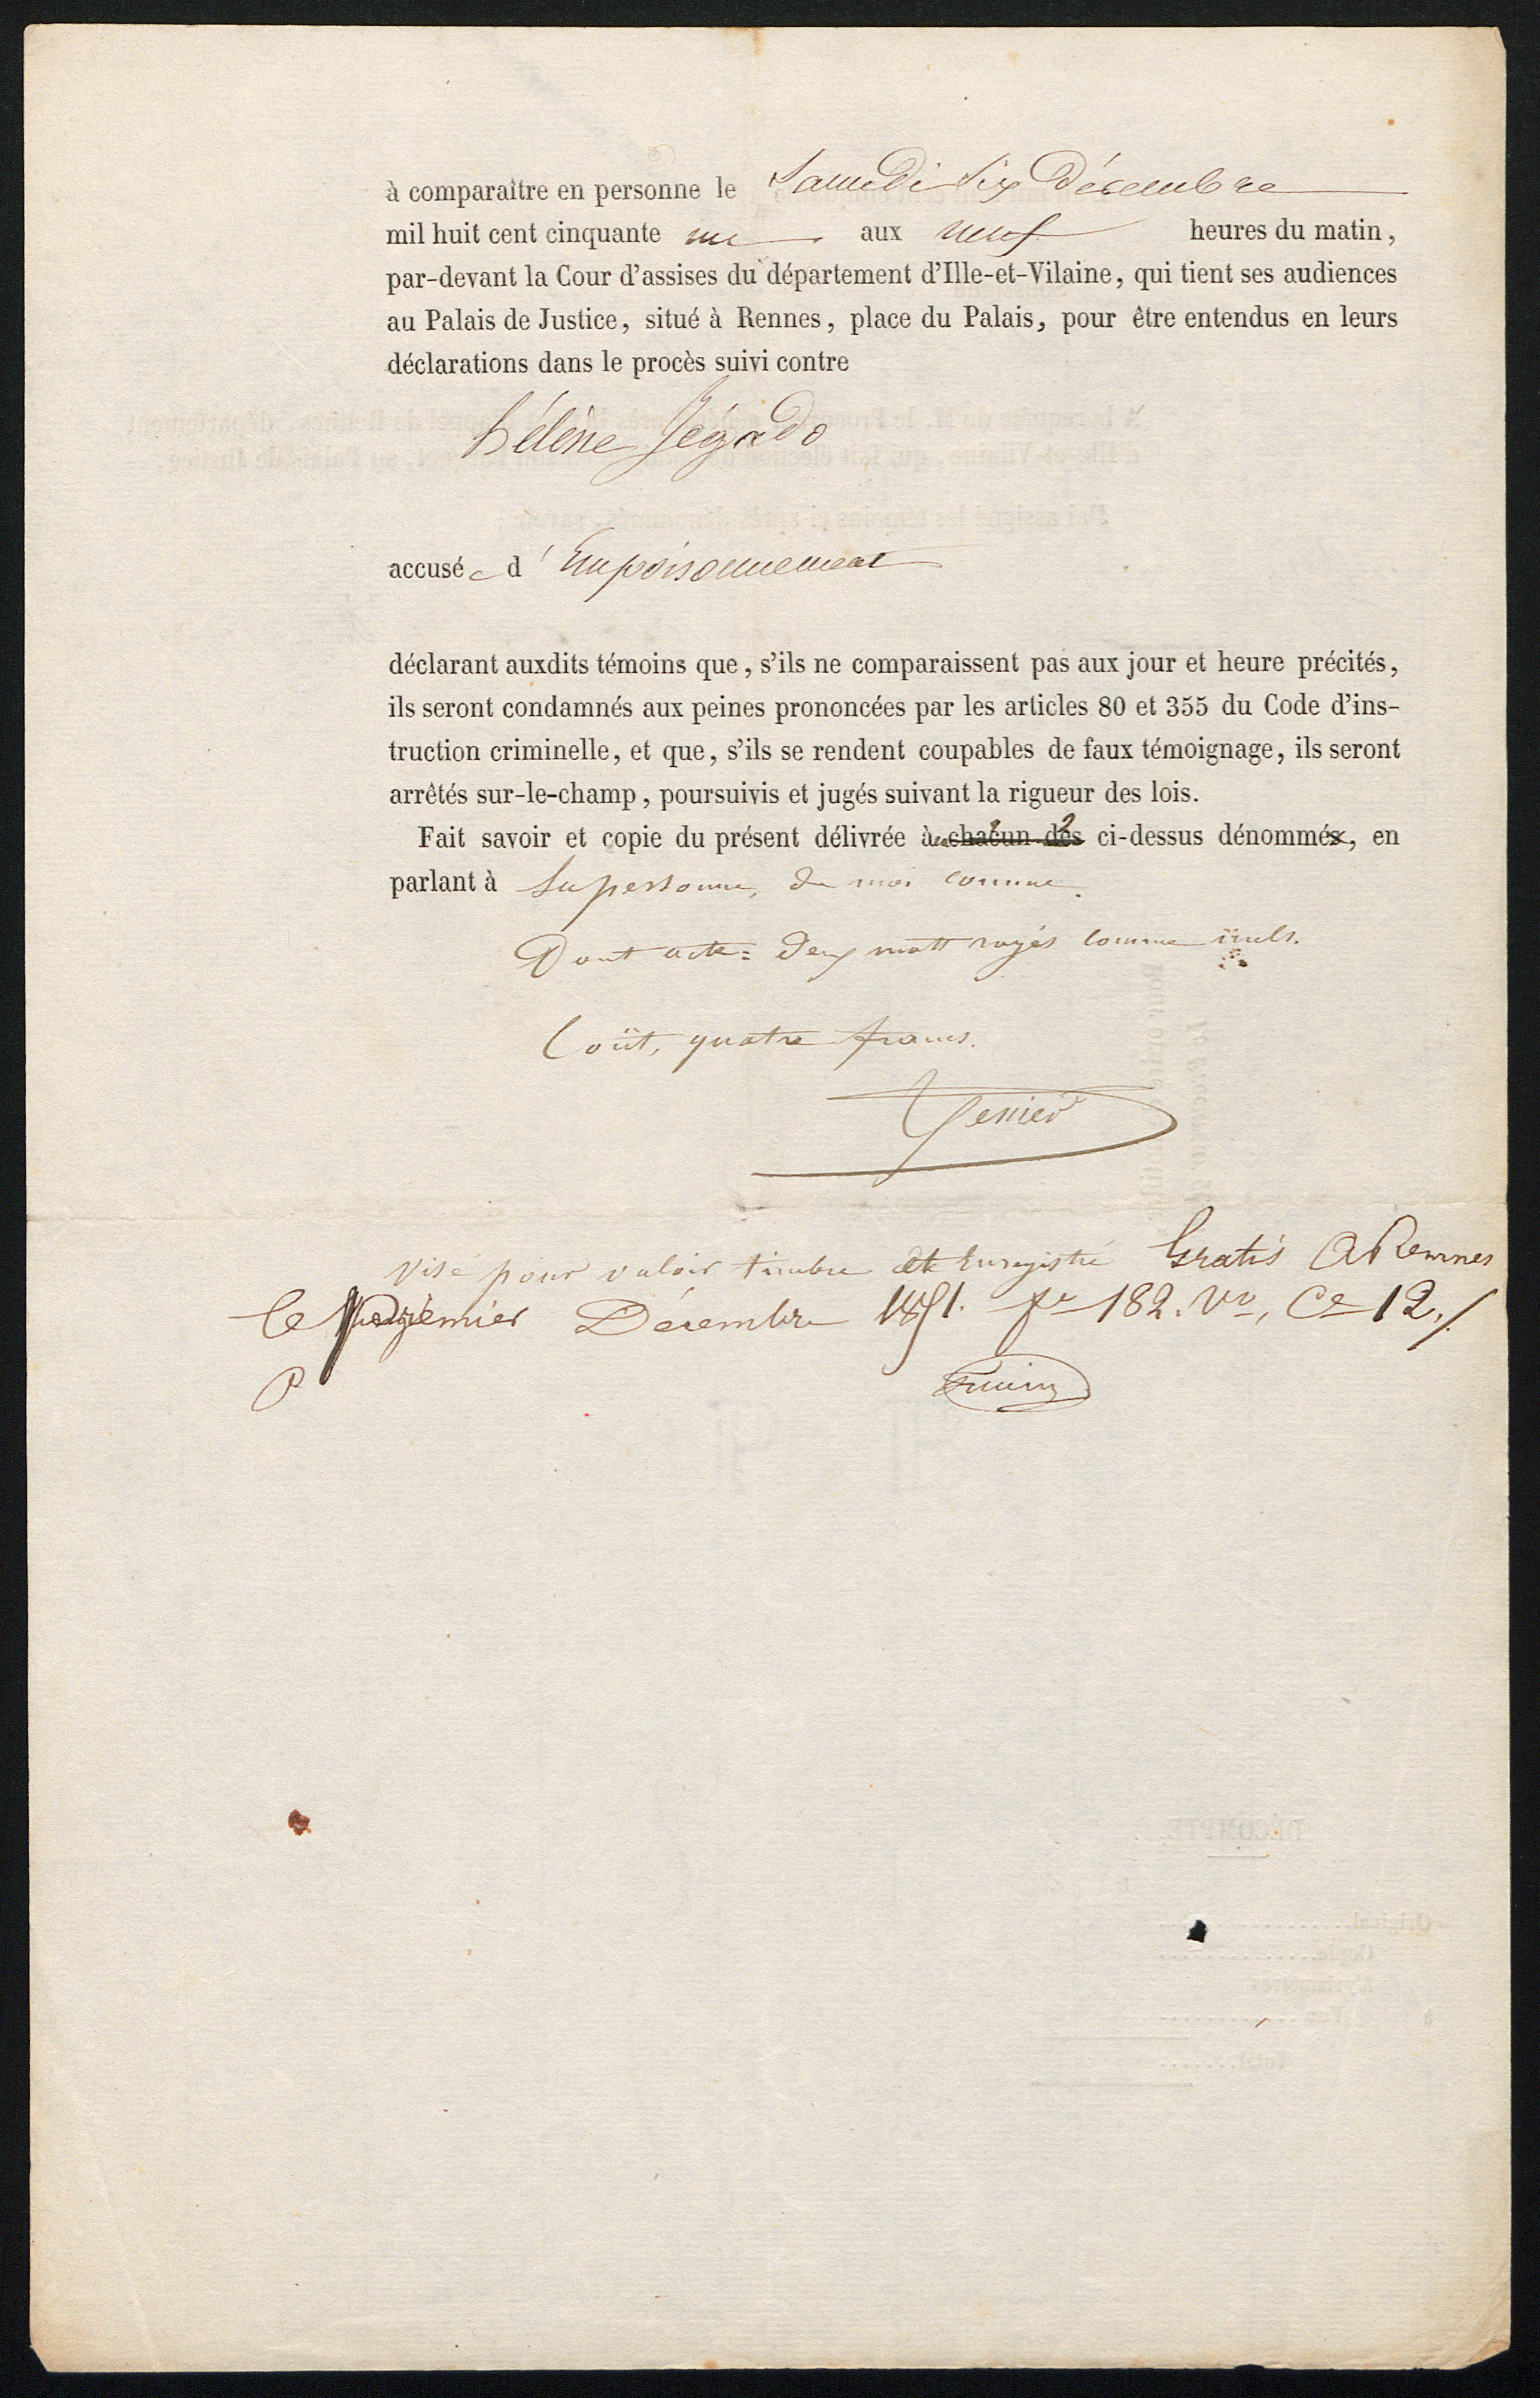 à comparaître en personne le Samedi six Décembre
mil huit cent cinquante un aux neuf heures du matin,
par-devant la Cour d'assises du département d'Ille-et-Vilaine, qui tient ses audiences
au Palais de Justice, situé à Rennes, place du Palais, pour être entendus en leurs
déclarations dans le procès suivi contre
hélène Jégado
accusée d'Empoisonnement
déclarant auxdits témoins que, s'ils ne comparaissent pas aux jour et heure précités,
ils seront condamnés aux peines prononcées par les articles 80 et 355 du Code d'ins-
truction criminelle, et que, s'ils se rendent coupables de faux témoignage, ils seront
arrêtés sur-le-champ, poursuivis et jugés suivant la rigueur des lois.
Fait savoir et copie du présent délivrée à chacun des ci-dessus dénommés, en
parlant à sa personne, de moi connue.
Dont acte = deux mots rayés comme nuls.
Coût, quatre francs.
Visé pour valoir timbre et Enregistré Gratis A Rennes
le Premier Décembre 1851. fo 182. Vo, Ce 12./.